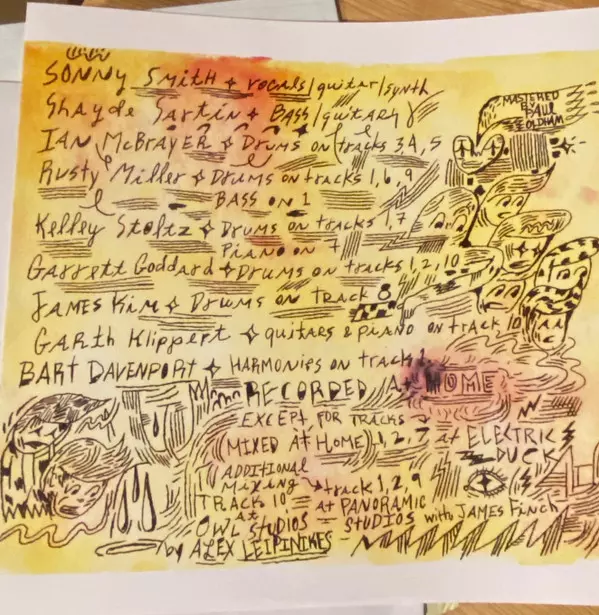 SONNY Smith + vocals/guitar/synth
Shayde Sartin + BASS/guitar
IAN McBRAYER + Drums on tracks 3, 4, 5
Rusty Miller + Drums on tracks 1, 6, 9
BASS on 1
Kelley Stoltz + Drums on tracks 1, 7
PIANO on 7
Garrett Goddard + Drums on tracks 1, 2, 10
JAMES Kim + Drums on track 8
GARth Klippert + guitars & piano on track 10
BART DAVENPORT + HARMONIES on track
MASTERED
BY
PAUL
OLDHAM
RECORDED At HOME
EXCEPT FOR TRACKS
(MIXED At HOME) 1, 2, 7 at ELECTRIC
DUCK
ADDITIONAL
Mixing track 1, 2, 9
TRACK 10 = at PANORAMIC
at
OWL STUDIOS = STUDIOS with JAMES Finch
by ALEX LEIPINIKES